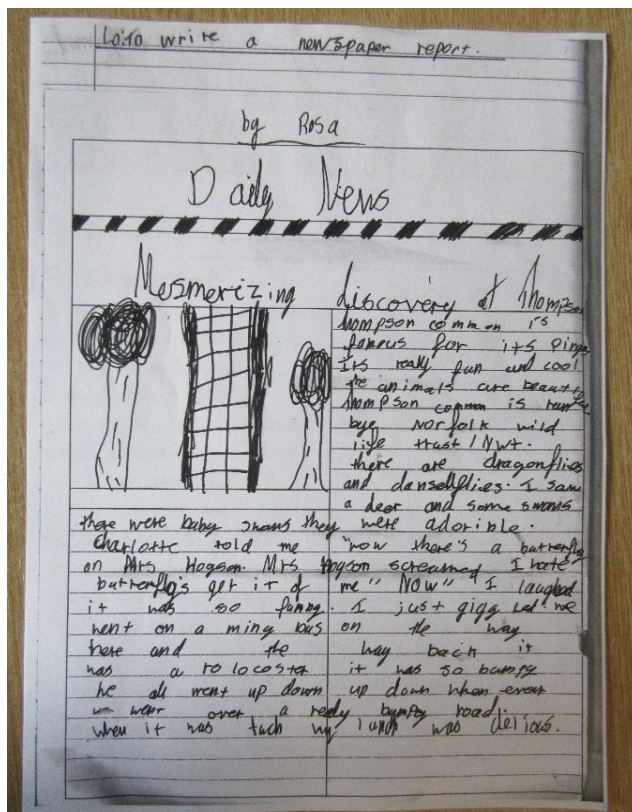 Lo: To write a newspaper report.
by Rosa
Daily News
Mesmerizing discovery at Thompson
thompson common is
famous for its pingo
Its really fun and cool
the animals are beautiful
thompson common is run
bye Norfolk wild
life trust / NWT.
there are dragonflies
and danselflies. I saw
a deer and some swans
there were baby swans they were adorible.
Charlotte told me "now there's a butterfly
on Mrs Hogson. Mrs Hogson screamed I hate
butterfly's get it of me" "NOW" I laughed
it was so funny. I just giggled. we
went on a miny bus on the way
here and the way back it
was a rolocoster it was so bumpy
he all went up down up down when ever
we went over a realy bumpy road.
when it was luch my lunch was delious.